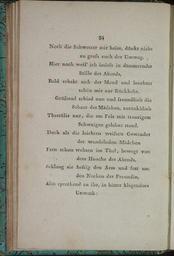 24
Noch die Schwester mir heim, dünkt nicht
zu groß euch der Umweg.
Hier noch weil' ich indeß in dämmernder
Stille des Abends,
Bald erhebt sich der Mond und leuchtet
schön mir zur Rückkehr.
Grüßend schied nun und freundlich die
Schaar der Mädchen, zurückblieb
Theotilis nur, die am Fels mit traurigem
Schweigen gelehnt stand.
Doch als die leichten weißen Gewänder
der wandelnden Mädchen
Fern schon wehten im Thal, bewegt von
dem Hauche des Abends,
Schlang sie heftig den Arm und fest um
den Nacken der Freundin,
Also sprechend zu ihr, in bitter klagendem
Unmuth: